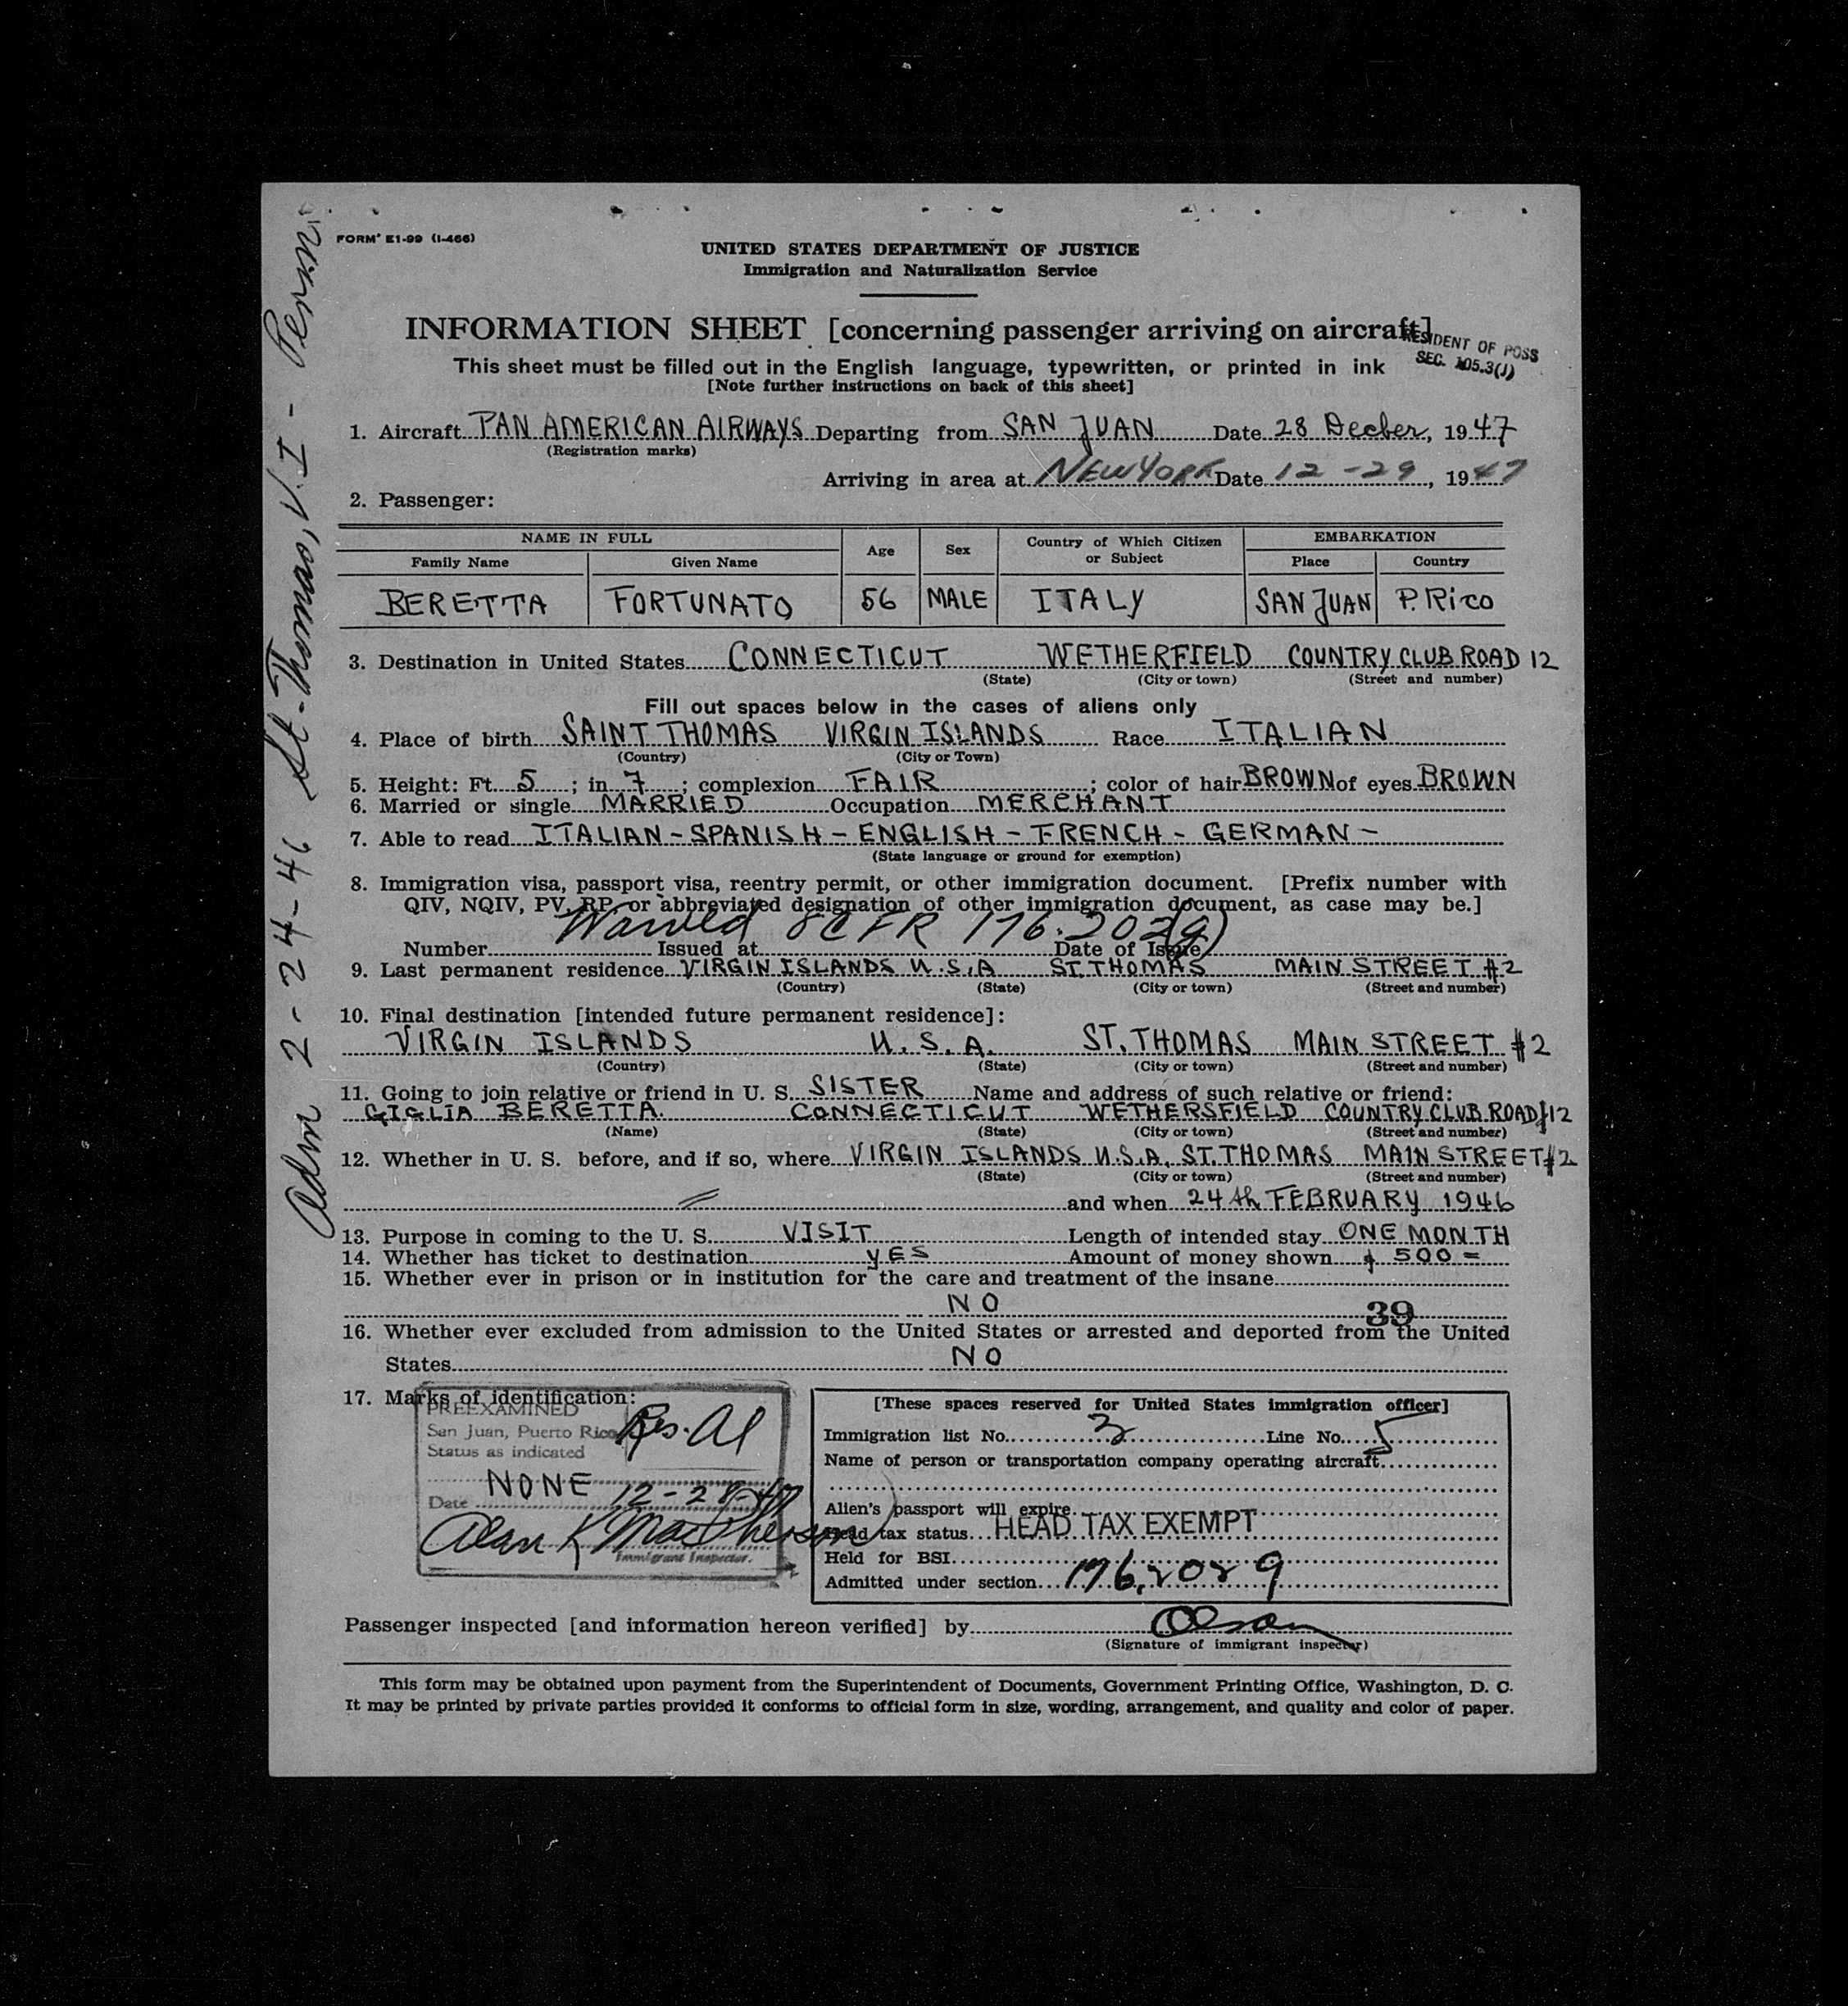 FORM E1-99 (I-466)
UNITED STATES DEPARTMENT OF JUSTICE
Immigration and Naturalization Service
INFORMATION SHEET [concerning passenger arriving on aircraft]
RESIDENT OF POSS
SEC. 105.3(J)
This sheet must be filled out in the English language, typewritten, or printed in ink
[Note further instructions on back of this sheet]
1. Aircraft PAN AMERICAN AIRWAYS Departing from SAN JUAN Date 28 Decber, 1947
(Registration marks)
Arriving in area at NEW YORK Date 12-29, 1947
2. Passenger:
NAME IN FULL Age Sex Country of Which Citizen or Subject EMBARKATION
Family Name Given Name Place Country
BERETTA FORTUNATO 56 MALE ITALY SAN JUAN P. RICO
3. Destination in United States CONNECTICUT WETHERFIELD COUNTRY CLUB ROAD 12
(State) (City or town) (Street and number)
Fill out spaces below in the cases of aliens only
4. Place of birth SAINT THOMAS VIRGIN ISLANDS Race ITALIAN
(Country) (City or Town)
5. Height: Ft. 5; in 7; complexion FAIR; color of hair BROWN of eyes BROWN
6. Married or single MARRIED Occupation MERCHANT
7. Able to read ITALIAN - SPANISH - ENGLISH - FRENCH - GERMAN -
(State language or ground for exemption)
8. Immigration visa, passport visa, reentry permit, or other immigration document. [Prefix number with
QIV, NQIV, PV, RP, or abbreviated designation of other immigration document, as case may be.]
Waived 8 CFR 176.202(g)
Number Issued at Date of Issue
9. Last permanent residence VIRGIN ISLANDS U.S.A ST. THOMAS MAIN STREET #2
(Country) (State) (City or town) (Street and number)
10. Final destination [intended future permanent residence]:
VIRGIN ISLANDS U.S.A. ST. THOMAS MAIN STREET #2
(Country) (State) (City or town) (Street and number)
11. Going to join relative or friend in U. S. SISTER Name and address of such relative or friend:
GIGLIA BERETTA. CONNECTICUT WETHERSFIELD COUNTRY CLUB ROAD #12
(Name) (State) (City or town) (Street and number)
12. Whether in U. S. before, and if so, where VIRGIN ISLANDS U.S.A. ST. THOMAS MAIN STREET #2
(State) (City or town) (Street and number)
and when 24th FEBRUARY 1946
13. Purpose in coming to the U. S. VISIT Length of intended stay ONE MONTH
14. Whether has ticket to destination YES Amount of money shown $ 500=
15. Whether ever in prison or in institution for the care and treatment of the insane
NO
39
16. Whether ever excluded from admission to the United States or arrested and deported from the United
States NO
17. Marks of identification:
PREEXAMINED
San Juan, Puerto Rico Res. Al
Status as indicated
NONE
Date 12-28-47
Alan K MacPherson
Immigrant Inspector.
[These spaces reserved for United States immigration officer]
Immigration list No. 3 Line No. 5
Name of person or transportation company operating aircraft
Alien's passport will expire
Head tax status HEAD TAX EXEMPT
Held for BSI
Admitted under section 176.202 g
Passenger inspected [and information hereon verified] by Olson
(Signature of immigrant inspector)
This form may be obtained upon payment from the Superintendent of Documents, Government Printing Office, Washington, D. C.
It may be printed by private parties provided it conforms to official form in size, wording, arrangement, and quality and color of paper.
Adm 2-24-46 St. Thomas, V.I - Perm.